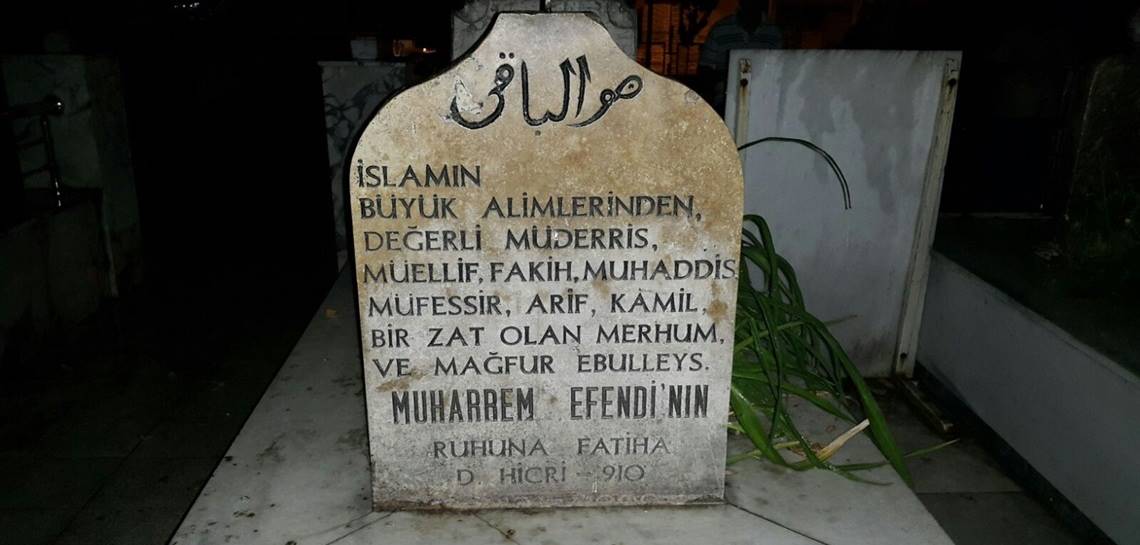 هو الباقى
İSLAMIN
BÜYÜK ALİMLERİNDEN,
DEĞERLİ MÜDERRİS,
MÜELLİF, FAKİH, MUHADDİS
MÜFESSİR, ARİF, KÂMİL,
BİR ZAT OLAN MERHUM,
VE MAĞFUR EBULLEYS.
MUHARREM EFENDİ'NİN
RUHUNA FATİHA
D. HİCRİ - 910